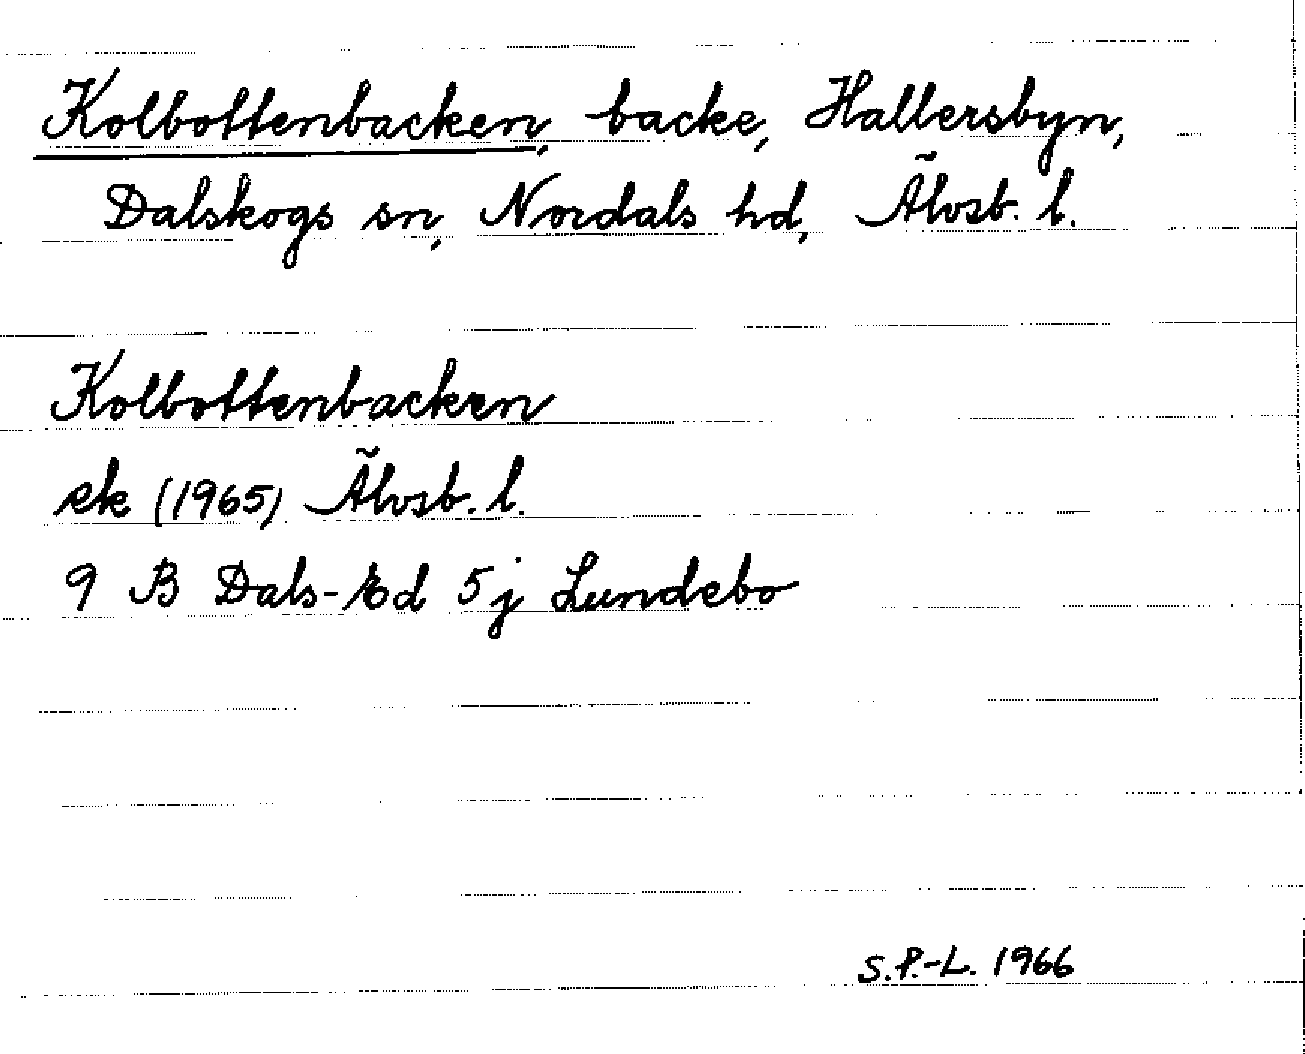 Kolbottenbacken, backe, Hallersbyn,
Dalskogs sn, Nordals hd, Älvsb. l.
Kolbottenbacken
ek (1965) Älvsb. l.
9 B Dals-Ed 5 j Lundebo
S.P.-L. 1966